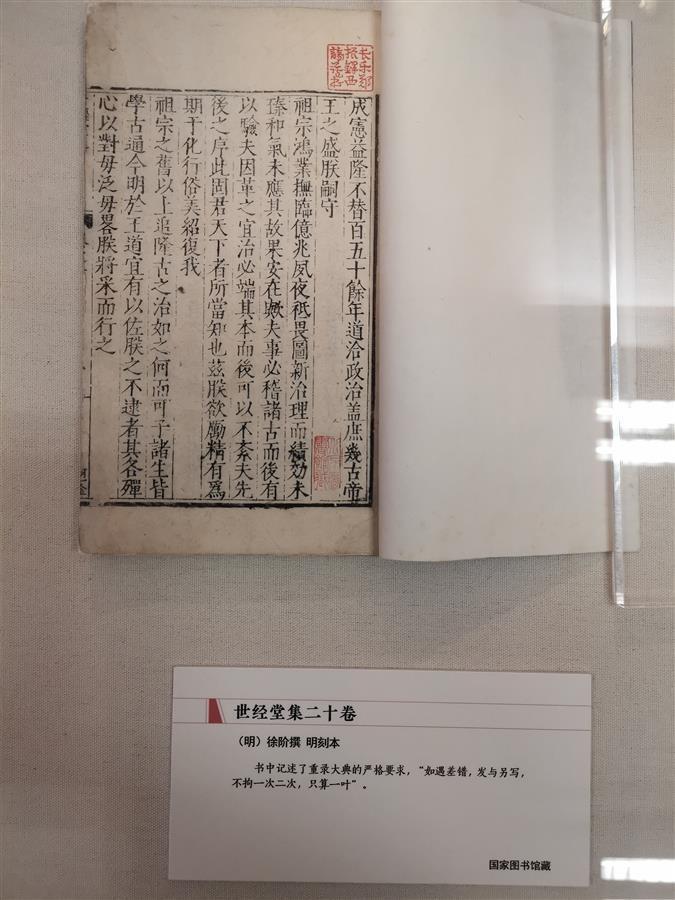 成憲益隆不替百五十餘年道洽政治盖庶幾古帝
王之盛朕嗣守
祖宗鴻業撫臨億兆夙夜祗畏圖新治理而績効未
臻和氣未應其故果安在歟夫事必稽諸古而後有
以驗夫因革之宜治必端其本而後可以不紊夫先
後之序此固君天下者所當知也茲朕欲勵精有為
期于化行俗美紹復我
祖宗之舊以上追隆古之治如之何而可子諸生皆
學古通今明於王道宜有以佐朕之不逮者其各殫
心以對毋泛毋畧朕將采而行之
长乐郑
振铎西
谛藏书
世经堂集二十卷
（明）徐阶撰 明刻本
书中记述了重录大典的严格要求，“如遇差错，发与另写，
不拘一次二次，只算一叶”。
国家图书馆藏